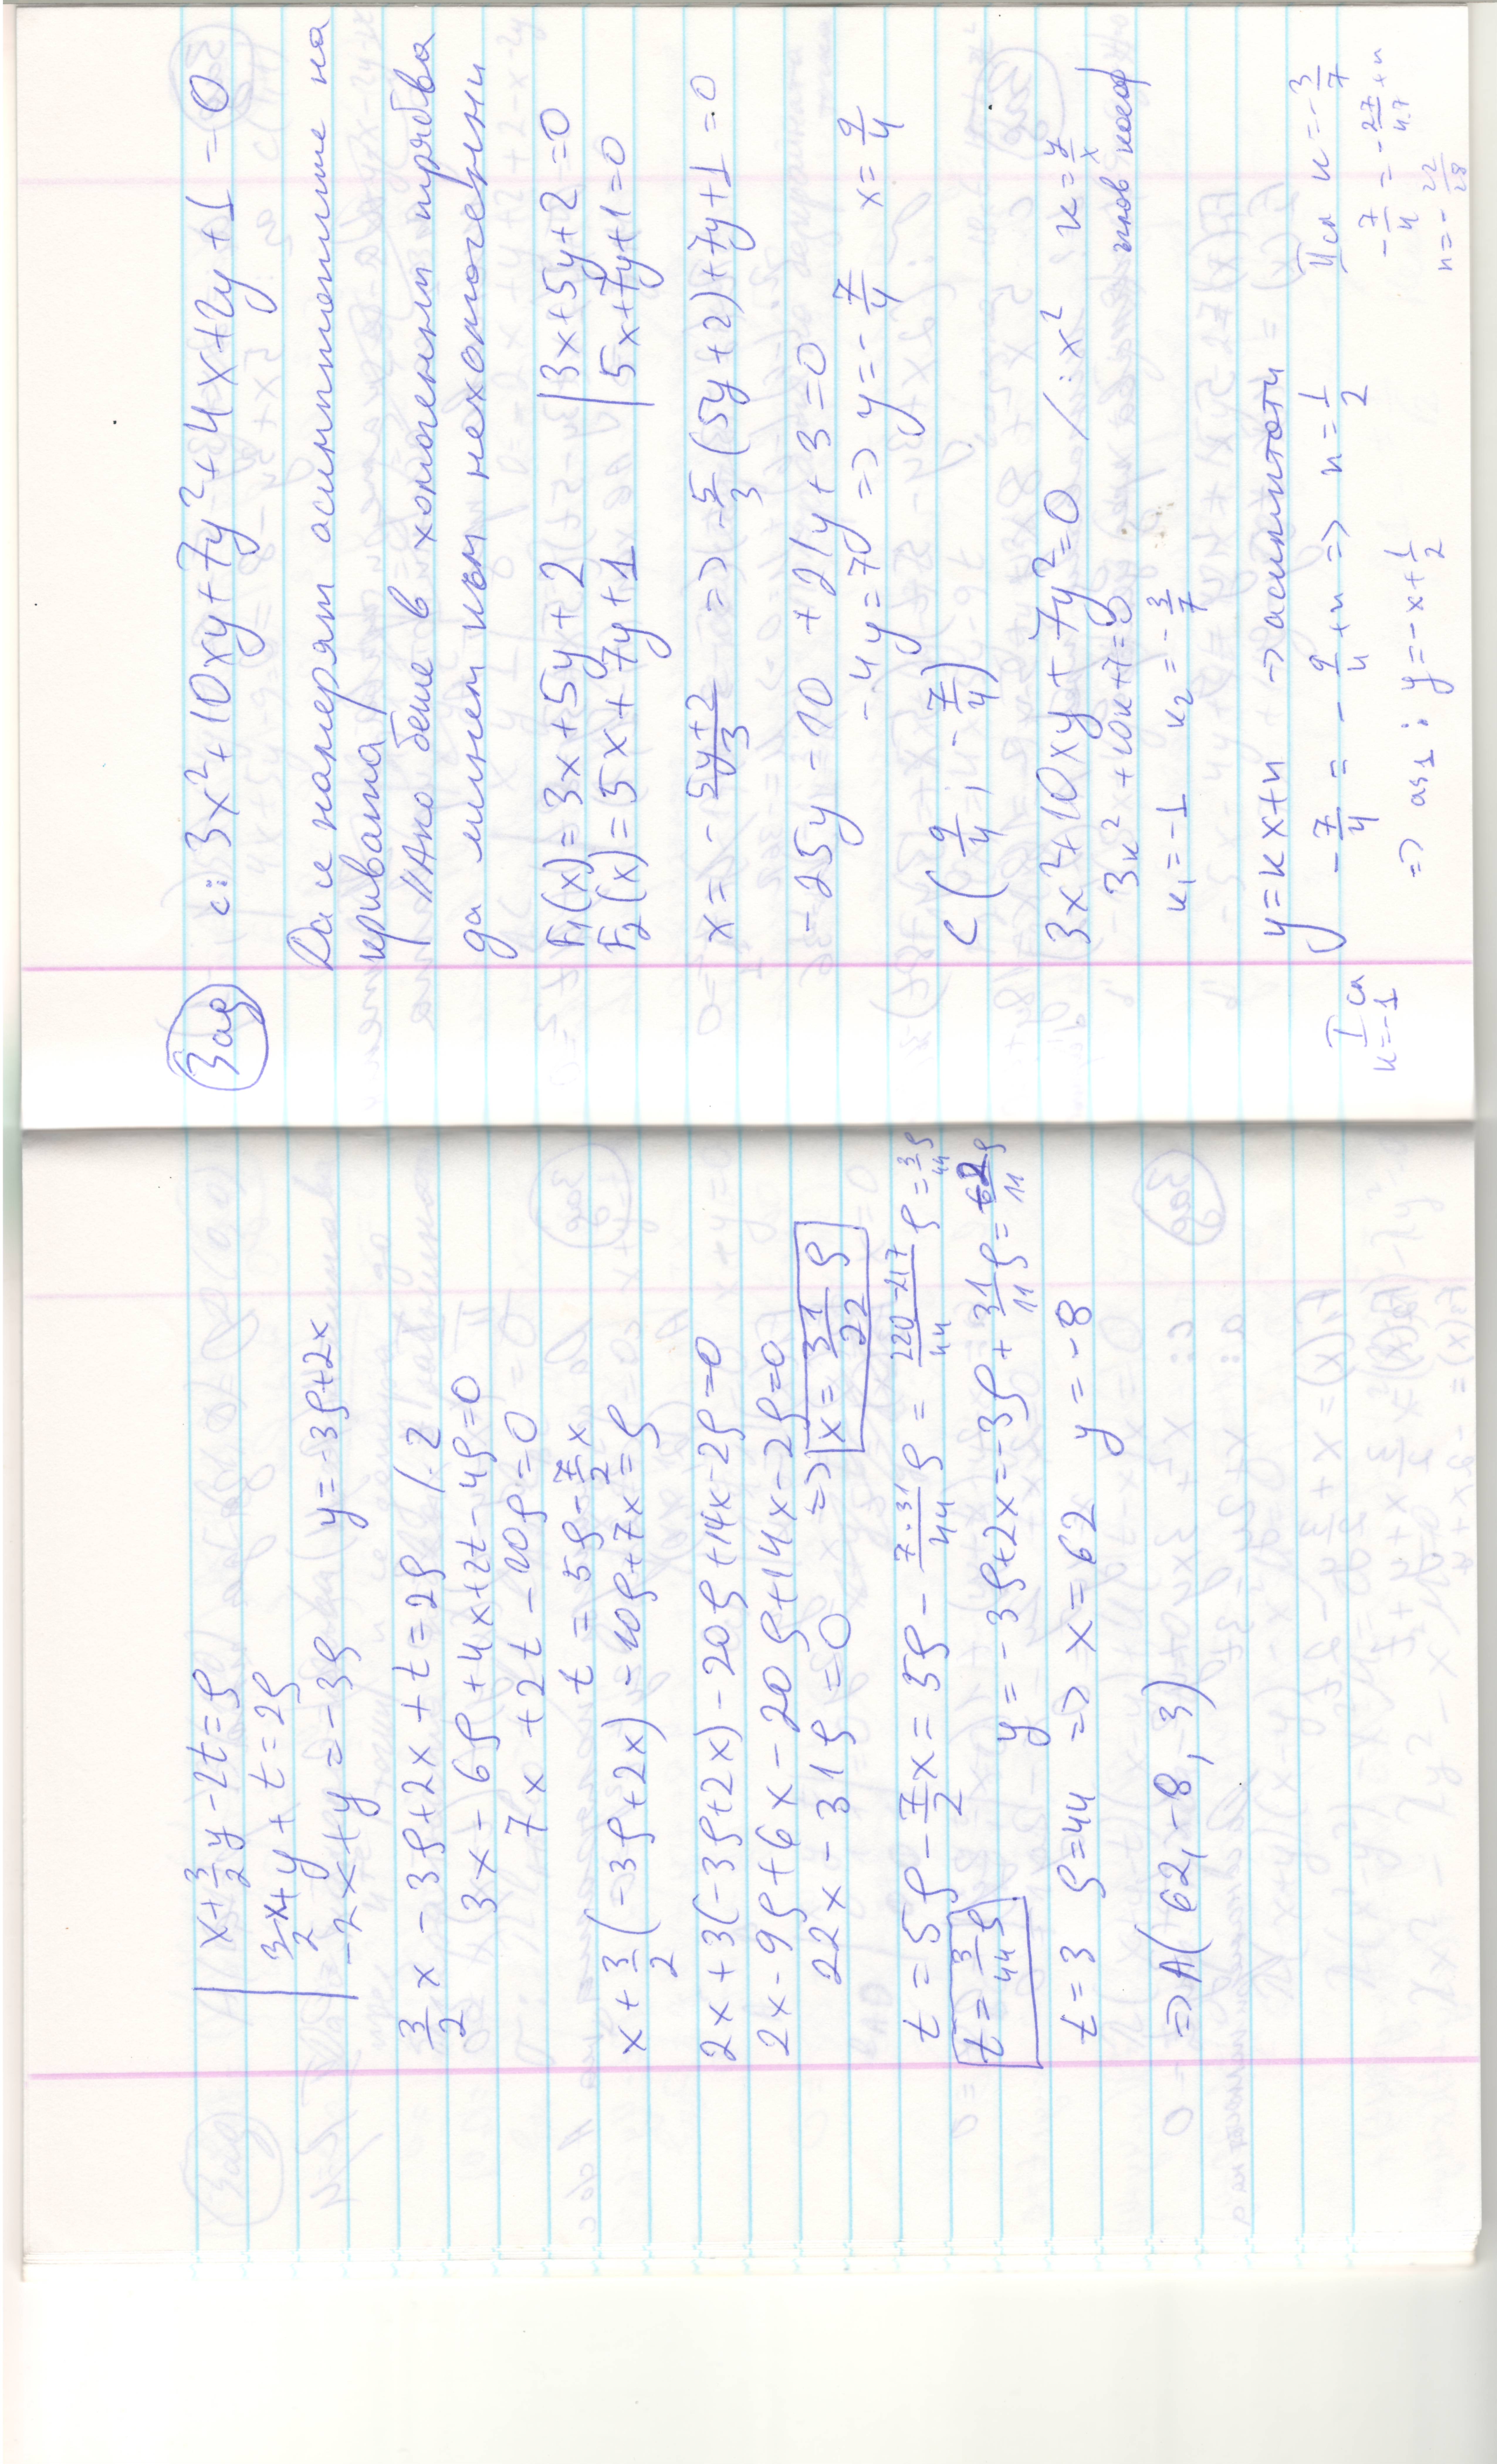 x + 3/2 y - 2t = ρ
3/2 x + y + t = 2ρ
-2x + y = -3ρ y = -3ρ + 2x
3/2 x - 3ρ + 2x + t = 2ρ /.2
3x - 6ρ + 4x + 2t - 4ρ = 0
7x + 2t - 10ρ = 0
t = 5ρ - 7/2 x
x + 3/2 (-3ρ + 2x) - 10ρ + 7x = ρ
2x + 3(-3ρ + 2x) - 20ρ + 14x - 2ρ = 0
2x - 9ρ + 6x - 20ρ + 14x - 2ρ = 0
22x - 31ρ = 0 => x = 31/22 ρ
t = 5ρ - 7/2 x = 5ρ - 7.31/44 ρ = 220-217/44 ρ = 3/44 ρ
t = 3/44 ρ y = -3ρ + 2x = -3ρ + 31/11 ρ = -2/11 ρ
t = 3 ρ = 44 => x = 62 y = -8
=> A(62, -8, 3)
Зад c: 3x² + 10xy + 7y² + 4x + 2y + 1 = 0
Да се намерят асимптотите на
кривата
//Ако беше в хомогенни трябва
да минем към нехомогенни
F₁(x) = 3x + 5y + 2 | 3x + 5y + 2 = 0
F₂(x) = 5x + 7y + 1 | 5x + 7y + 1 = 0
x = - 5y+2/3 => - 5/3 (5y + 2) + 7y + 1 = 0
-25y - 10 + 21y + 3 = 0
-4y = 7 => y = - 7/4 x = 9/4
C (9/4 ; - 7/4)
3x² + 10xy + 7y² = 0 / : x² к = y/x
3к² + 10к + 7 = 0 ъглов коеф
к₁ = -1 к₂ = - 3/7
y = кx + n -> асимптоти
I сл к = -1 - 7/4 = - 9/4 + n => n = 1/2
=> as₁ : y = -x + 1/2
II сл к = - 3/7
- 7/4 = - 27/4.7 + n
n = - 22/28